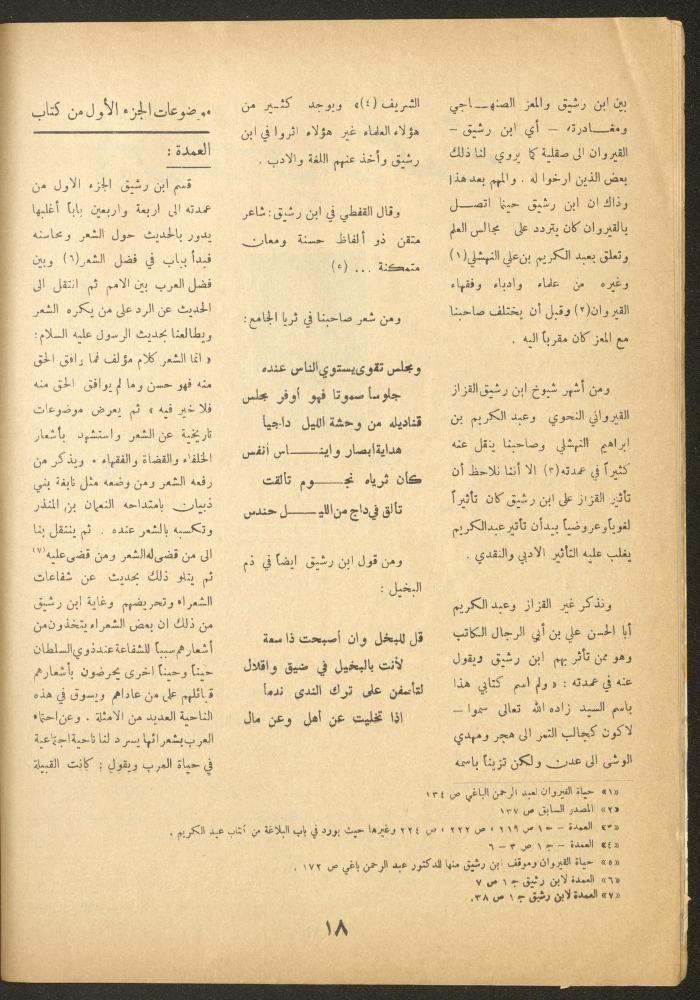 بين ابن رشيق والمعز الصنهاجي
ومغادرته — أي ابن رشيق —
القيروان الى صقلية كما يروي لنا ذلك
بعض الذين ارخوا له . والمهم بعد هذا
وذاك ان ابن رشيق حينما اتصل
بالقيروان كان يتردد على مجالس العلم
وتعلق بعبد الكريم بن علي النهشلي(١)
وغيره من علماء وادباء وفقهاء
القيروان(٢) وقبل أن يختلف صاحبنا
مع المعز كان مقرباً اليه .
ومن أشهر شيوخ ابن رشيق القزاز
القيرواني النحوي وعبد الكريم بن
ابراهيم النهشلي وصاحبنا ينقل عنه
كثيراً في عمدته(٣) الا أننا نلاحظ أن
تأثير القزاز على ابن رشيق كان تأثيراً
لغوياً وعروضياً بيد أن تأثير عبدالكريم
يغلب عليه التأثير الادبي والنقدي .
ونذكر غير القزاز وعبد الكريم
أبا الحسن علي بن أبي الرجال الكاتب
وهو ممن تأثر بهم ابن رشيق ويقول
عنه في عمدته : « ولم اسم كتابي هذا
باسم السيد زاده الله تعالى سموا —
لاكون كجالب التمر الى هجر ومهدي
الوشى الى عدن ولكن تزيناً باسمه
الشريف (٤)» ويوجد كثير من
هؤلاء العلماء غير هؤلاء اثروا في ابن
رشيق وأخذ عنهم اللغة والادب .
وقال القفطي في ابن رشيق : شاعر
متقن ذو ألفاظ حسنة ومعان
متمكنة ... (٥)
ومن شعر صاحبنا في ثريا الجامع :
ومجلس تقوى يستوي الناس عنده
جلوساً صموتا فهو أوفر مجلس
قناديله من وحشة الليل داجياً
هداية ابصار وايناس أنفس
كأن ثرياه نجوم تألقت
تألق في داج من الليل حندس
ومن قول ابن رشيق ايضاً في ذم
البخيل :
قل للبخل وان أصبحت ذا سعة
لأنت بالبخيل في ضيق واقلال
لتأسفن على ترك الندى ندماً
اذا تخليت عن أهل وعن مال
موضوعات الجزء الأول من كتاب
العمدة :
قسم ابن رشيق الجزء الاول من
عمدته الى اربعة واربعين باباً أغلبها
يدور بالحديث حول الشعر ومحاسنه
فبدأ بباب في فضل الشعر(٦) وبين
فضل العرب بين الامم ثم انتقل الى
الحديث عن الرد على من يكره الشعر
ويطالعنا بحديث الرسول عليه السلام :
« انما الشعر كلام مؤلف فما وافق الحق
منه فهو حسن وما لم يوافق الحق منه
فلا خير فيه » ثم يعرض موضوعات
تاريخية عن الشعر واستشهد بأشعار
الخلفاء والقضاة والفقهاء . ويذكر من
رفعه الشعر ومن وضعه مثل نابغة بني
ذبيان بامتداحه النعمان بن المنذر
وتكسبه بالشعر عنده . ثم ينتقل بنا
الى من قضى له الشعر ومن قضى عليه(٧)
ثم يتلو ذلك بحديث عن شفاعات
الشعراء وتحريضهم وغاية ابن رشيق
من ذلك ان بعض الشعراء يتخذون من
أشعارهم سبباً للشفاعة عند ذوي السلطان
حيناً وحيناً اخرى يحرضون بأشعارهم
قبائلهم على من عاداهم ويسوق في هذه
الناحية العديد من الامثلة . وعن احتماء
العرب بشعرائها يسرد لنا ناحية اجتماعية
في حياة العرب ويقول : كانت القبيلة
«١» حياة القيروان لعبد الرحمن الباغي ص ١٣٤
«٢» المصدر السابق ص ١٣٧
«٣» العمدة — ج١ ص ٢١٩ ، ص ٢٢٢ ، ص ٢٢٤ وغيرها حيث يورد في باب البلاغة من كتاب عبد الكريم .
«٤» العمدة — ج ١ ص ٣ — ٦
«٥» حياة القيروان وموقف ابن رشيق منها للدكتور عبد الرحمن باغي ص ١٧٢ .
«٦» العمدة لابن رشيق ج ١ ص ٧
«٧» العمدة لابن رشيق ج ١ ص ٣٨.
١٨